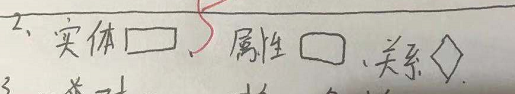 2、实体、属性、关系
3